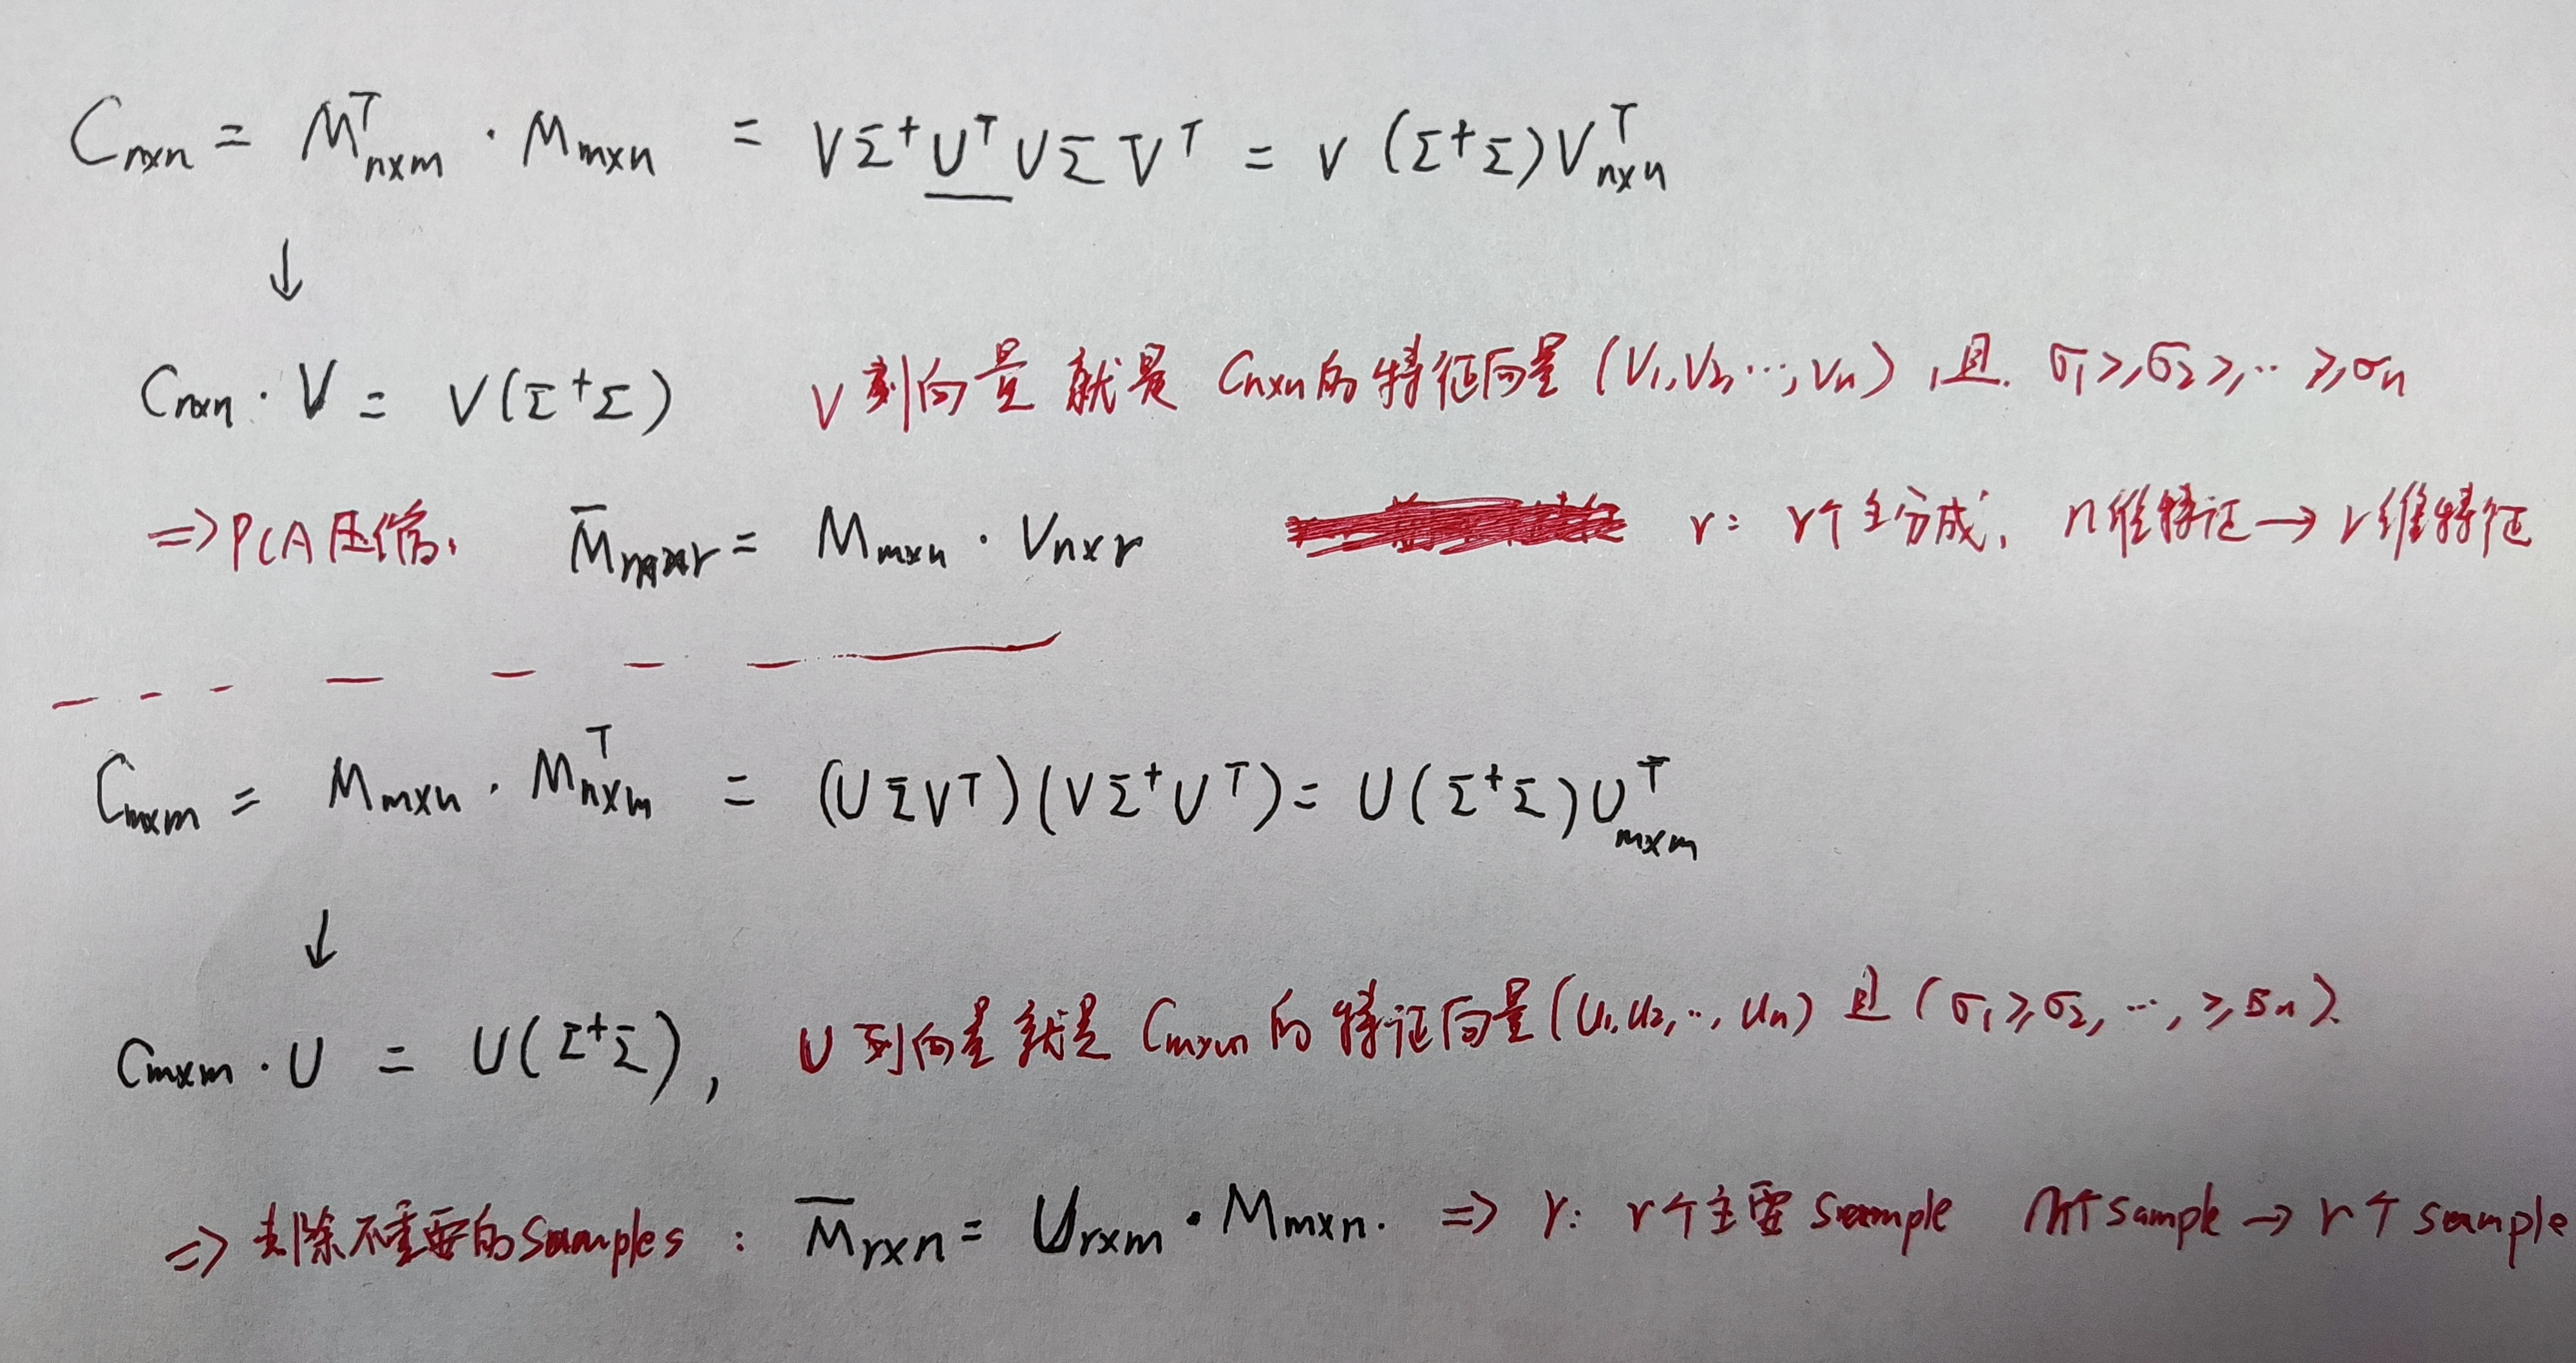 Cₙₓₙ = Mᵀₙₓₘ · Mₘₓₙ = VΣ⁺UᵀUΣVᵀ = V(Σ⁺Σ)Vᵀₙₓₙ
↓
Cₙₓₙ · V = V(Σ⁺Σ) V列向量 就是 Cₙₓₙ的特征向量(V₁,V₂,…,Vₙ),且. σ₁≥,σ₂≥,‥≥,σₙ
=>PCA压缩, M̅ₘₓᵣ = Mₘₓₙ · Vₙₓᵣ r: r个主分成, n维特征→r维特征
Cₘₓₘ = Mₘₓₙ · Mᵀₙₓₘ = (UΣVᵀ)(VΣ⁺Uᵀ) = U(Σ⁺Σ)Uᵀₘₓₘ
↓
Cₘₓₘ · U = U(Σ⁺Σ), U列向量就是Cₘₓₘ的特征向量(U₁,U₂,‥,Uₙ)且(σ₁≥σ₂,…,≥σₙ).
=> 去除不重要的samples: M̅ᵣₓₙ = Uᵣₓₘ · Mₘₓₙ. => r: r个主要sample m个sample → r个sample